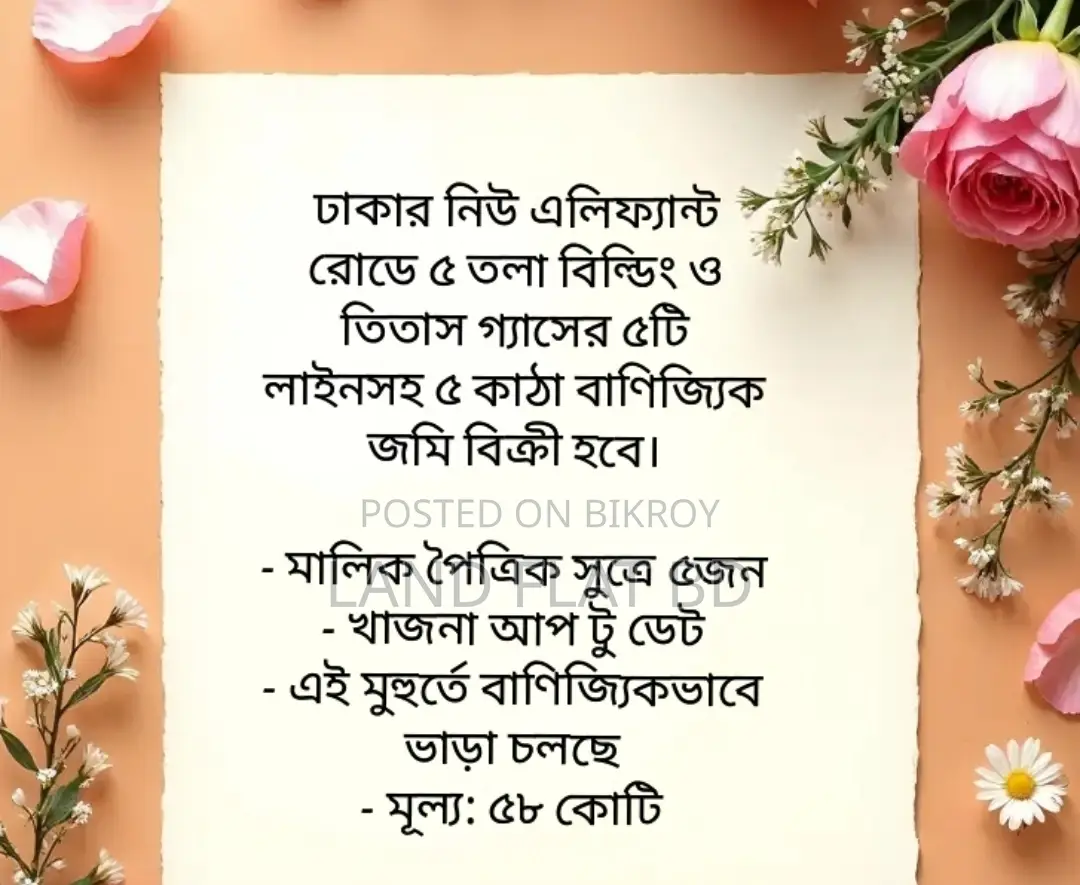 ঢাকার নিউ এলিফ্যান্ট
রোডে ৫ তলা বিল্ডিং ও
তিতাস গ্যাসের ৫টি
লাইনসহ ৫ কাঠা বাণিজ্যিক
জমি বিক্রী হবে।
POSTED ON BIKROY
- মালিক পৈত্রিক সুত্রে ৫জন
LAND FLAT BD
- খাজনা আপ টু ডেট
- এই মুহুর্তে বাণিজ্যিকভাবে
ভাড়া চলছে
- মূল্য: ৫৮ কোটি